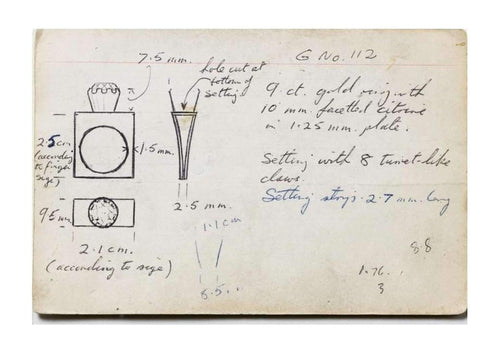 7.5 mm.
G No. 112
hole cut at
bottom of
setting
9 ct. gold ring with
10 mm. facetted citrine
in 1.25 mm. plate.
2.5 cm.
(according
to finger
size)
1.5 mm.
Setting with 8 turret-like
claws.
Setting strip 2.7 mm. long
2.5 mm.
9.5 mm
1.1 cm
2.1 cm.
(according to size)
8.5
8.8
1.76
3